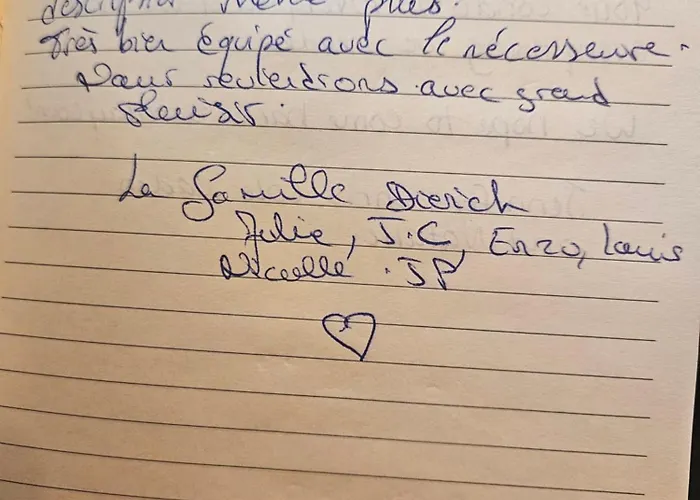 même plus.
Très bien équipé avec le nécesseure.
Nous reviendrons avec grand
plaisir.
La famille Dierich
Julie, J.C, Enzo, Louis
Nicolle . JP